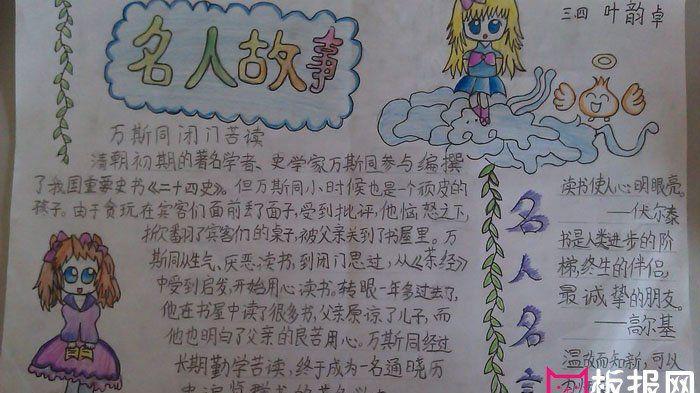 名人故事
三四 叶韵卓
万斯同闭门苦读
清朝初期的著名学者、史学家万斯同参与编撰
了我国重要史书《二十四史》。但万斯同小时候也是一个顽皮的
孩子。由于贪玩在宾客们面前丢了面子,受到批评,他恼怒之下,
掀翻了宾客们的桌子,被父亲关到了书屋里。万
斯同从生气、厌恶读书,到闭门思过,从《茶经》
中受到启发,开始用心读书。转眼一年多过去了,
他在书屋中读了很多书,父亲原谅了儿子,而
他也明白了父亲的良苦用心。万斯同经过
长期勤学苦读,终于成为一名通晓历
名人名言
读书使人心明眼亮。
——伏尔泰
书是人类进步的阶
梯,终生的伴侣,
最诚挚的朋友。
——高尔基
温故而知新,可以
板报网